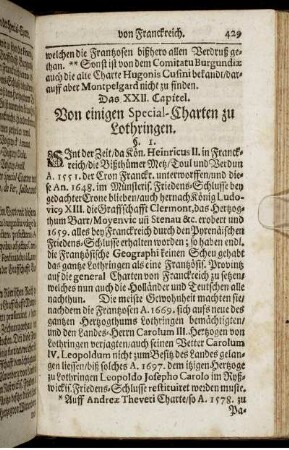 von Franckreich. 429
welchen die Frantzosen bißhero allen Verdruß ge-
than. ** Sonst ist von dem Comitatu Burgundiæ
auch die alte Charte Hugonis Cusini bekandt/dar-
auff aber Montpelgard nicht zu finden.
Das XXII. Capitel.
Von einigen Special-Charten zu
Lothringen.
§. 1.
SEint der Zeit/da Kön. Heinricus II. in Franck-
reich die Bißthümer Metz/Toul und Verdun
A. 1551. der Cron Franckr. unterworffen/und die-
se An. 1648. im Münsteris. Friedens-Schlusse bey
gedachter Crone blieben/auch hernach König Ludo-
vicus XIII. die Graffschafft Clermont, das Hertzog-
thum Barr/Moyenvic uñ Stenau &c. erobert und
1659. alles bey Franckreich durch den Pyrenäischen
Friedens-Schlusse erhalten worden; so haben endl.
die Frantzösische Geographi keinen Scheu gehabt
das gantze Lothringen als eine Frantzösis. Provintz
auf die general Charten von Franckreich zu setzen/
welches nun auch die Holländer und Teutschen alle
nachthun. Die meiste Gewohnheit machten sie/
nachdem die Frantzosen A. 1669. sich aufs neue des
gantzen Hertzogthums Lothringen bemächtigten/
und den Landes-Herrn Carolum III. Hertzogen von
Lothringen verjagten/auch seinen Vetter Carolum
IV. Leopoldum nicht zum Besitz des Landes gelan-
gen liessen/biß solches A. 1697. dem itzigen Hertzoge
zu Lothringen Leopoldo Josepho Carolo im Ryß-
wicki. Friedens-Schlusse restituiret werden muste.
* Auff Andreæ Theveti Charte/so A. 1578. zu
Pa-